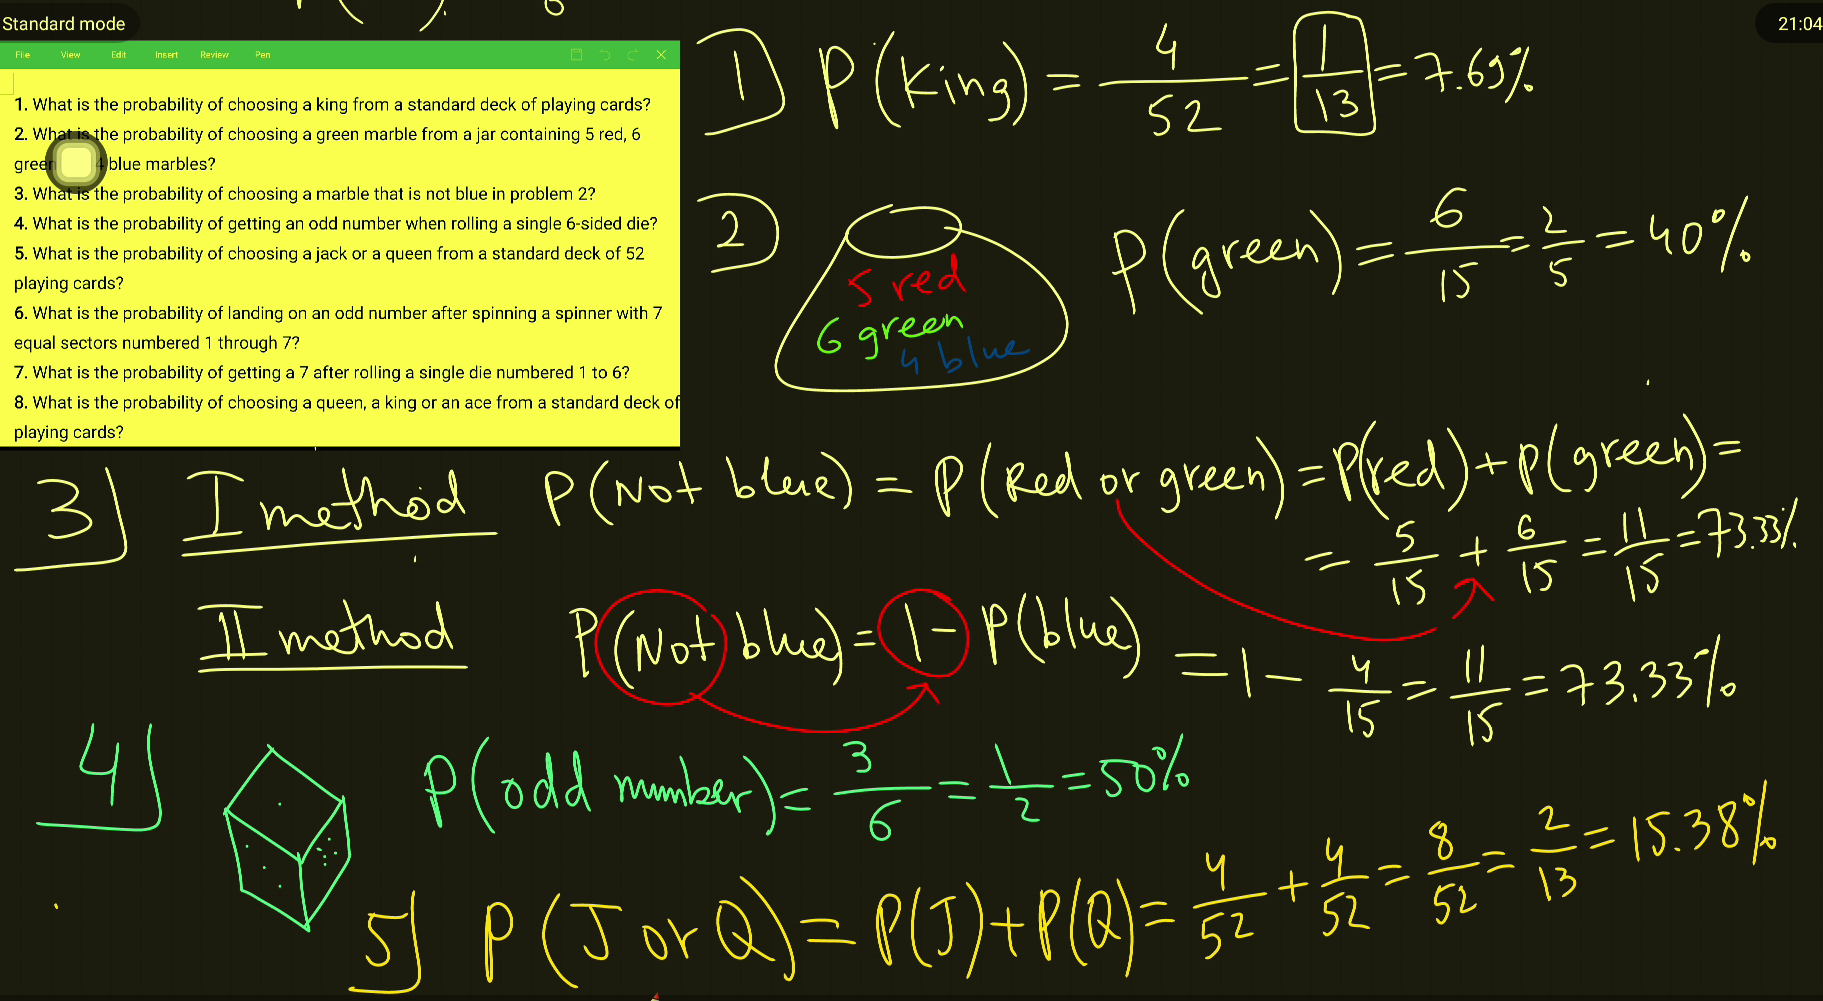 Standard mode
21:04
File View Edit Insert Review Pen
1. What is the probability of choosing a king from a standard deck of playing cards?
2. What is the probability of choosing a green marble from a jar containing 5 red, 6
green 4 blue marbles?
3. What is the probability of choosing a marble that is not blue in problem 2?
4. What is the probability of getting an odd number when rolling a single 6-sided die?
5. What is the probability of choosing a jack or a queen from a standard deck of 52
playing cards?
6. What is the probability of landing on an odd number after spinning a spinner with 7
equal sectors numbered 1 through 7?
7. What is the probability of getting a 7 after rolling a single die numbered 1 to 6?
8. What is the probability of choosing a queen, a king or an ace from a standard deck of
playing cards?
1) P(King) = 4/52 = 1/13 = 7.69%
2) P(green) = 6/15 = 2/5 = 40%
5 red
6 green
4 blue
3) I method P(Not blue) = P(Red or green) = P(red) + P(green) =
= 5/15 + 6/15 = 11/15 = 73.33%
II method P(Not blue) = 1 - P(blue) = 1 - 4/15 = 11/15 = 73.33%
4) P(odd number) = 3/6 = 1/2 = 50%
5) P(J or Q) = P(J) + P(Q) = 4/52 + 4/52 = 8/52 = 2/13 = 15.38%